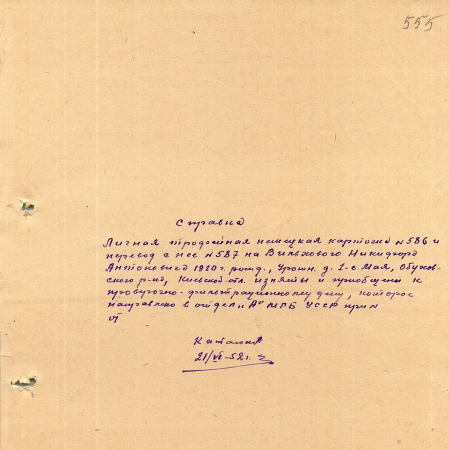 555
Справка
Личная трофейная немецкая карточка №586 и
перевод с нее №587 на Вильхового Никифора
Антоновича 1910 г. рожд., Урож. д. 1-е Мая, Обухов-
ского р-на, Киевской обл. изъяты и приобщены к
проверочно-фильтрационному делу, которое
направлено в отдел „А" МГБ УССР при №
от
21/VI-52 г.